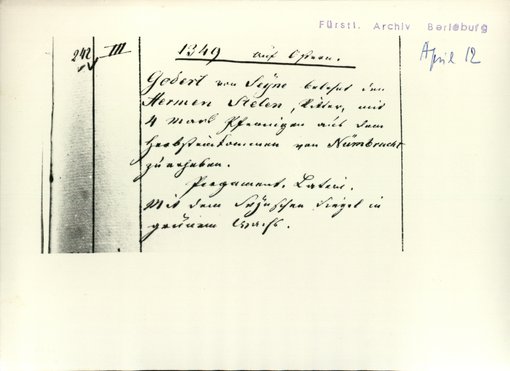 Fürstl. Archiv Berleburg
April 12
242 III
1349 auf Ostern.
Godert von Seyne belehnt den
Hermen Stelen, Ritter, mit
4 Mark Pfennigen aus dem
Herbsteinkommen von Nümbrecht
zu erheben.
Pergament. Latein.
Mit dem Seynschen Siegel in
grünem Wachs.